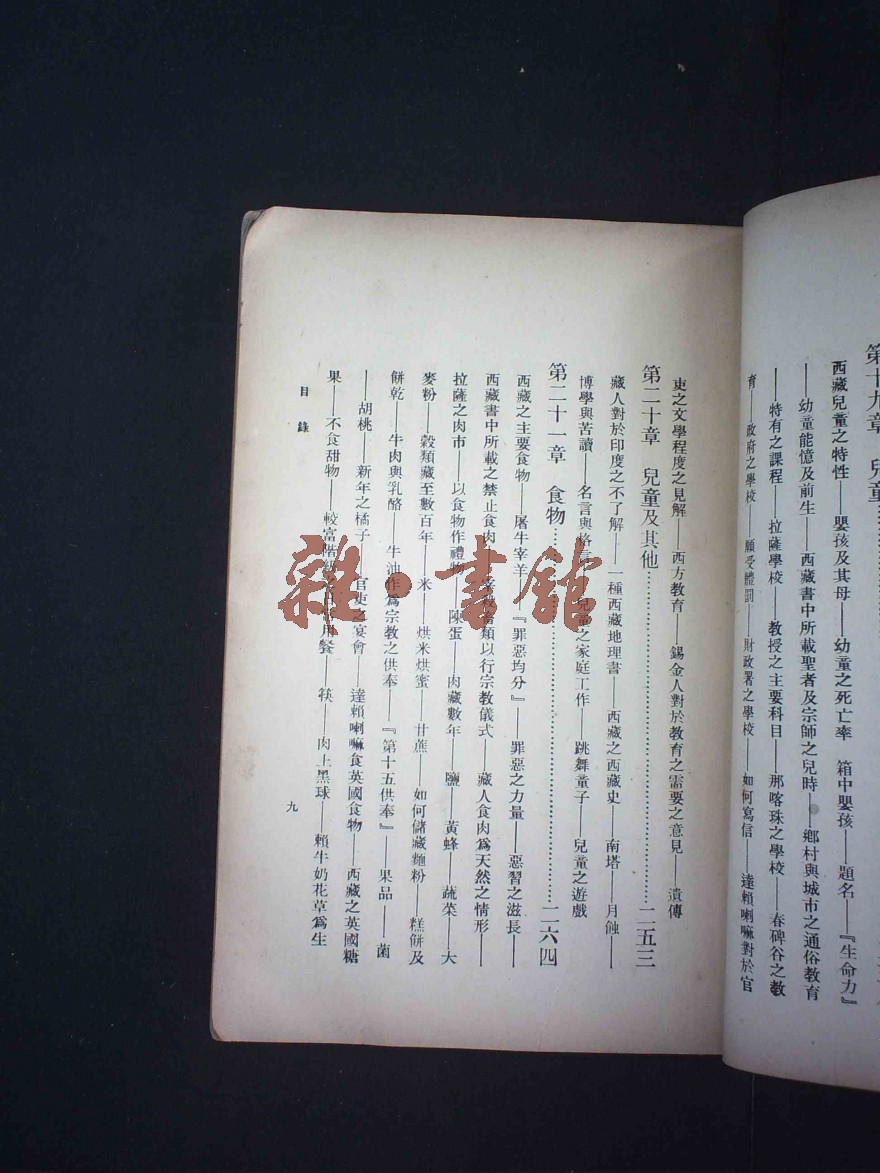 第十九章　兒童
西藏兒童之特性——嬰孩及其母——幼童之死亡率　箱中嬰孩——題名——『生命力』
——幼童能憶及前生——西藏書中所載聖者及宗師之兒時——鄉村與城市之通俗教育
——特有之課程——拉薩學校——教授之主要科目——那喀珠之學校——春碑谷之教
育——政府之學校——願受體罰——財政署之學校——如何寫信——達賴喇嘛對於官
吏之文學程度之見解——西方教育——錫金人對於教育之需要之意見——遺傳
第二十章　兒童及其他…………二五三
藏人對於印度之不了解——一種西藏地理書——西藏之西藏史——南塔——月蝕——
博學與苦讀——名言與格言——兒童之家庭工作——跳舞童子——兒童之遊戲
第二十一章　食物…………二六四
西藏之主要食物——屠牛宰羊——『罪惡均分』——罪惡之力量——惡習之滋長——
西藏書中所載之禁止食肉——以行宗教儀式——藏人食肉爲天然之情形——
拉薩之肉市——以食物作禮物——陳蛋——肉藏數年——鹽——黃蜂——蔬菜——大
麥粉——穀類藏至數百年——米——烘米烘蜜——甘蔗——如何儲藏麵粉——糕餅及
餅乾——牛肉與乳酪——牛油作爲宗教之供奉——『第十五供奉』——果品——菌
——胡桃——新年之橘子——官吏之宴會——達賴喇嘛食英國食物——西藏之英國糖
果——不食甜物——較富階級用餐——筷——肉上黑球——賴牛奶花草爲生
目錄
九
雜·書館